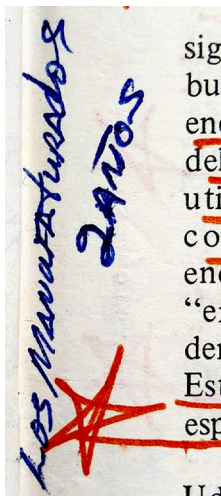 Los Manufacturados
2 AÑOS
sig
bu
enc
del
uti
co
enc
“e
der
Est
esp